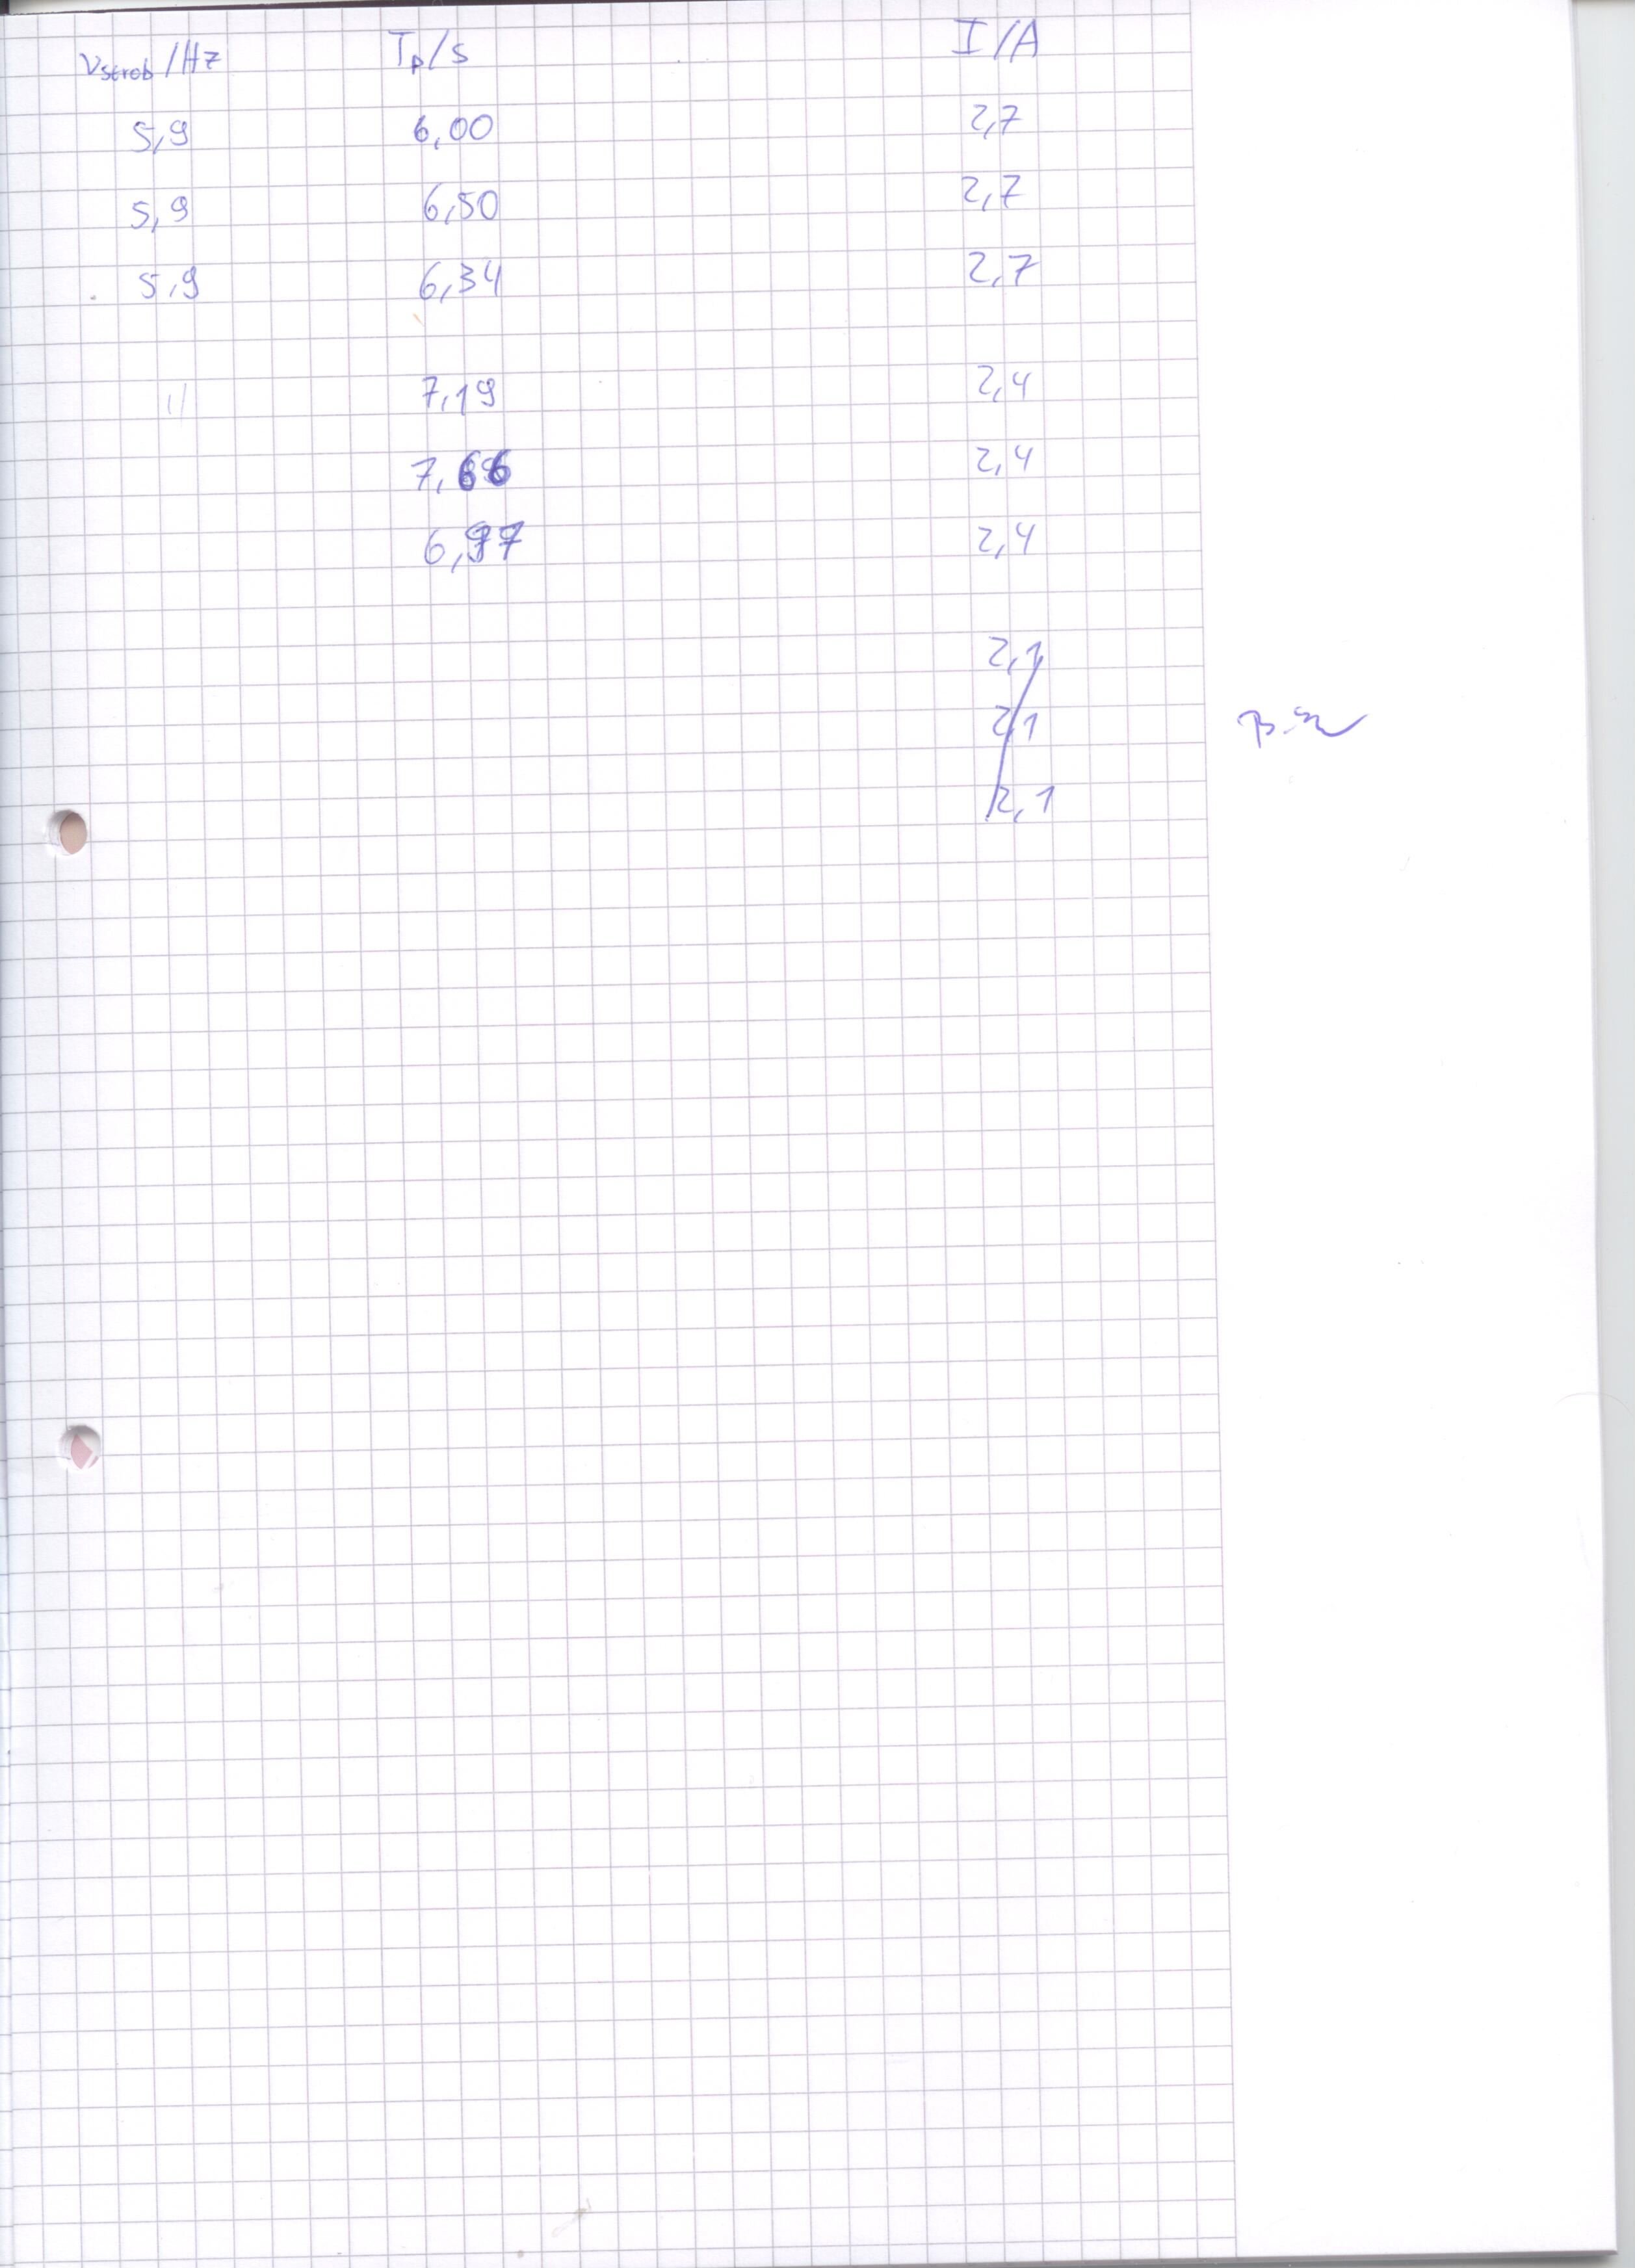 νstrob/Hz Tp/s I/A
5,9 6,00 2,7
5,9 6,50 2,7
5,9 6,34 2,7
11 7,19 2,4
7,66 2,4
6,97 2,4
2,1
2,1
2,1